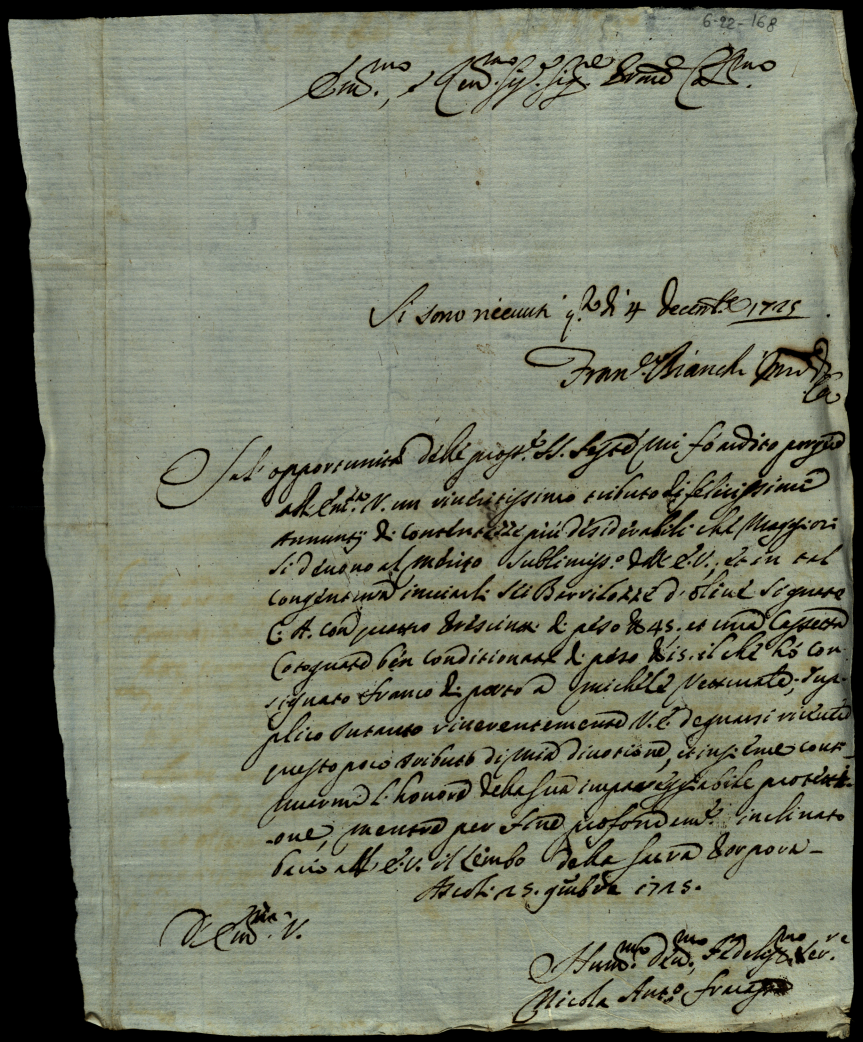 6-22-168
Em.mo, e Rem.mo Sig.r Sig.re Pron.e Col.mo
Si sono riceuuti q.to dì 4 decemb.e 1725
Fran.co Bianchi
Nell'opportunità delle pross.e SS. feste mi fò ardito porgere
all'Em.za V. un viuacissimo tributo di felicissime
Annunzij di contentezze più desiderabili che Maggiori
si deuono al merito sublimiss.o dell'E.V., et in tal
congentura inuiarli sei Barrilozze d'oliue signate
C: A. con quatro di peso 45. et una Cassetta
Cotognate ben conditionate di peso 15. il che hò con
signato franco di porto a Michele Vetturale, sup-
plico intanto riuerentemente V.E. degnarsi riceuere
questo poco tributo di mia diuotione, et insieme conti-
nuarmi l'honore della sua impareggiabile protetti-
one, mentre per fine profondam.e inclinato
bacio all'E.V. il Lembo della Sacra Porpora-
Ascoli 25. 9mbre 1725.
Di Em.za V.
Hum.mo Deu.mo, Fedeliss.mo Ser.re
Nicola Ant.o